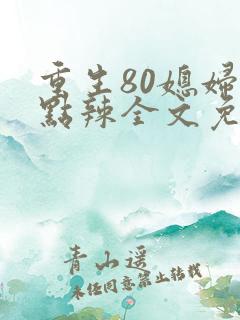 重生80媳婦
點辣全文免
青山遥
未经同意禁止转载